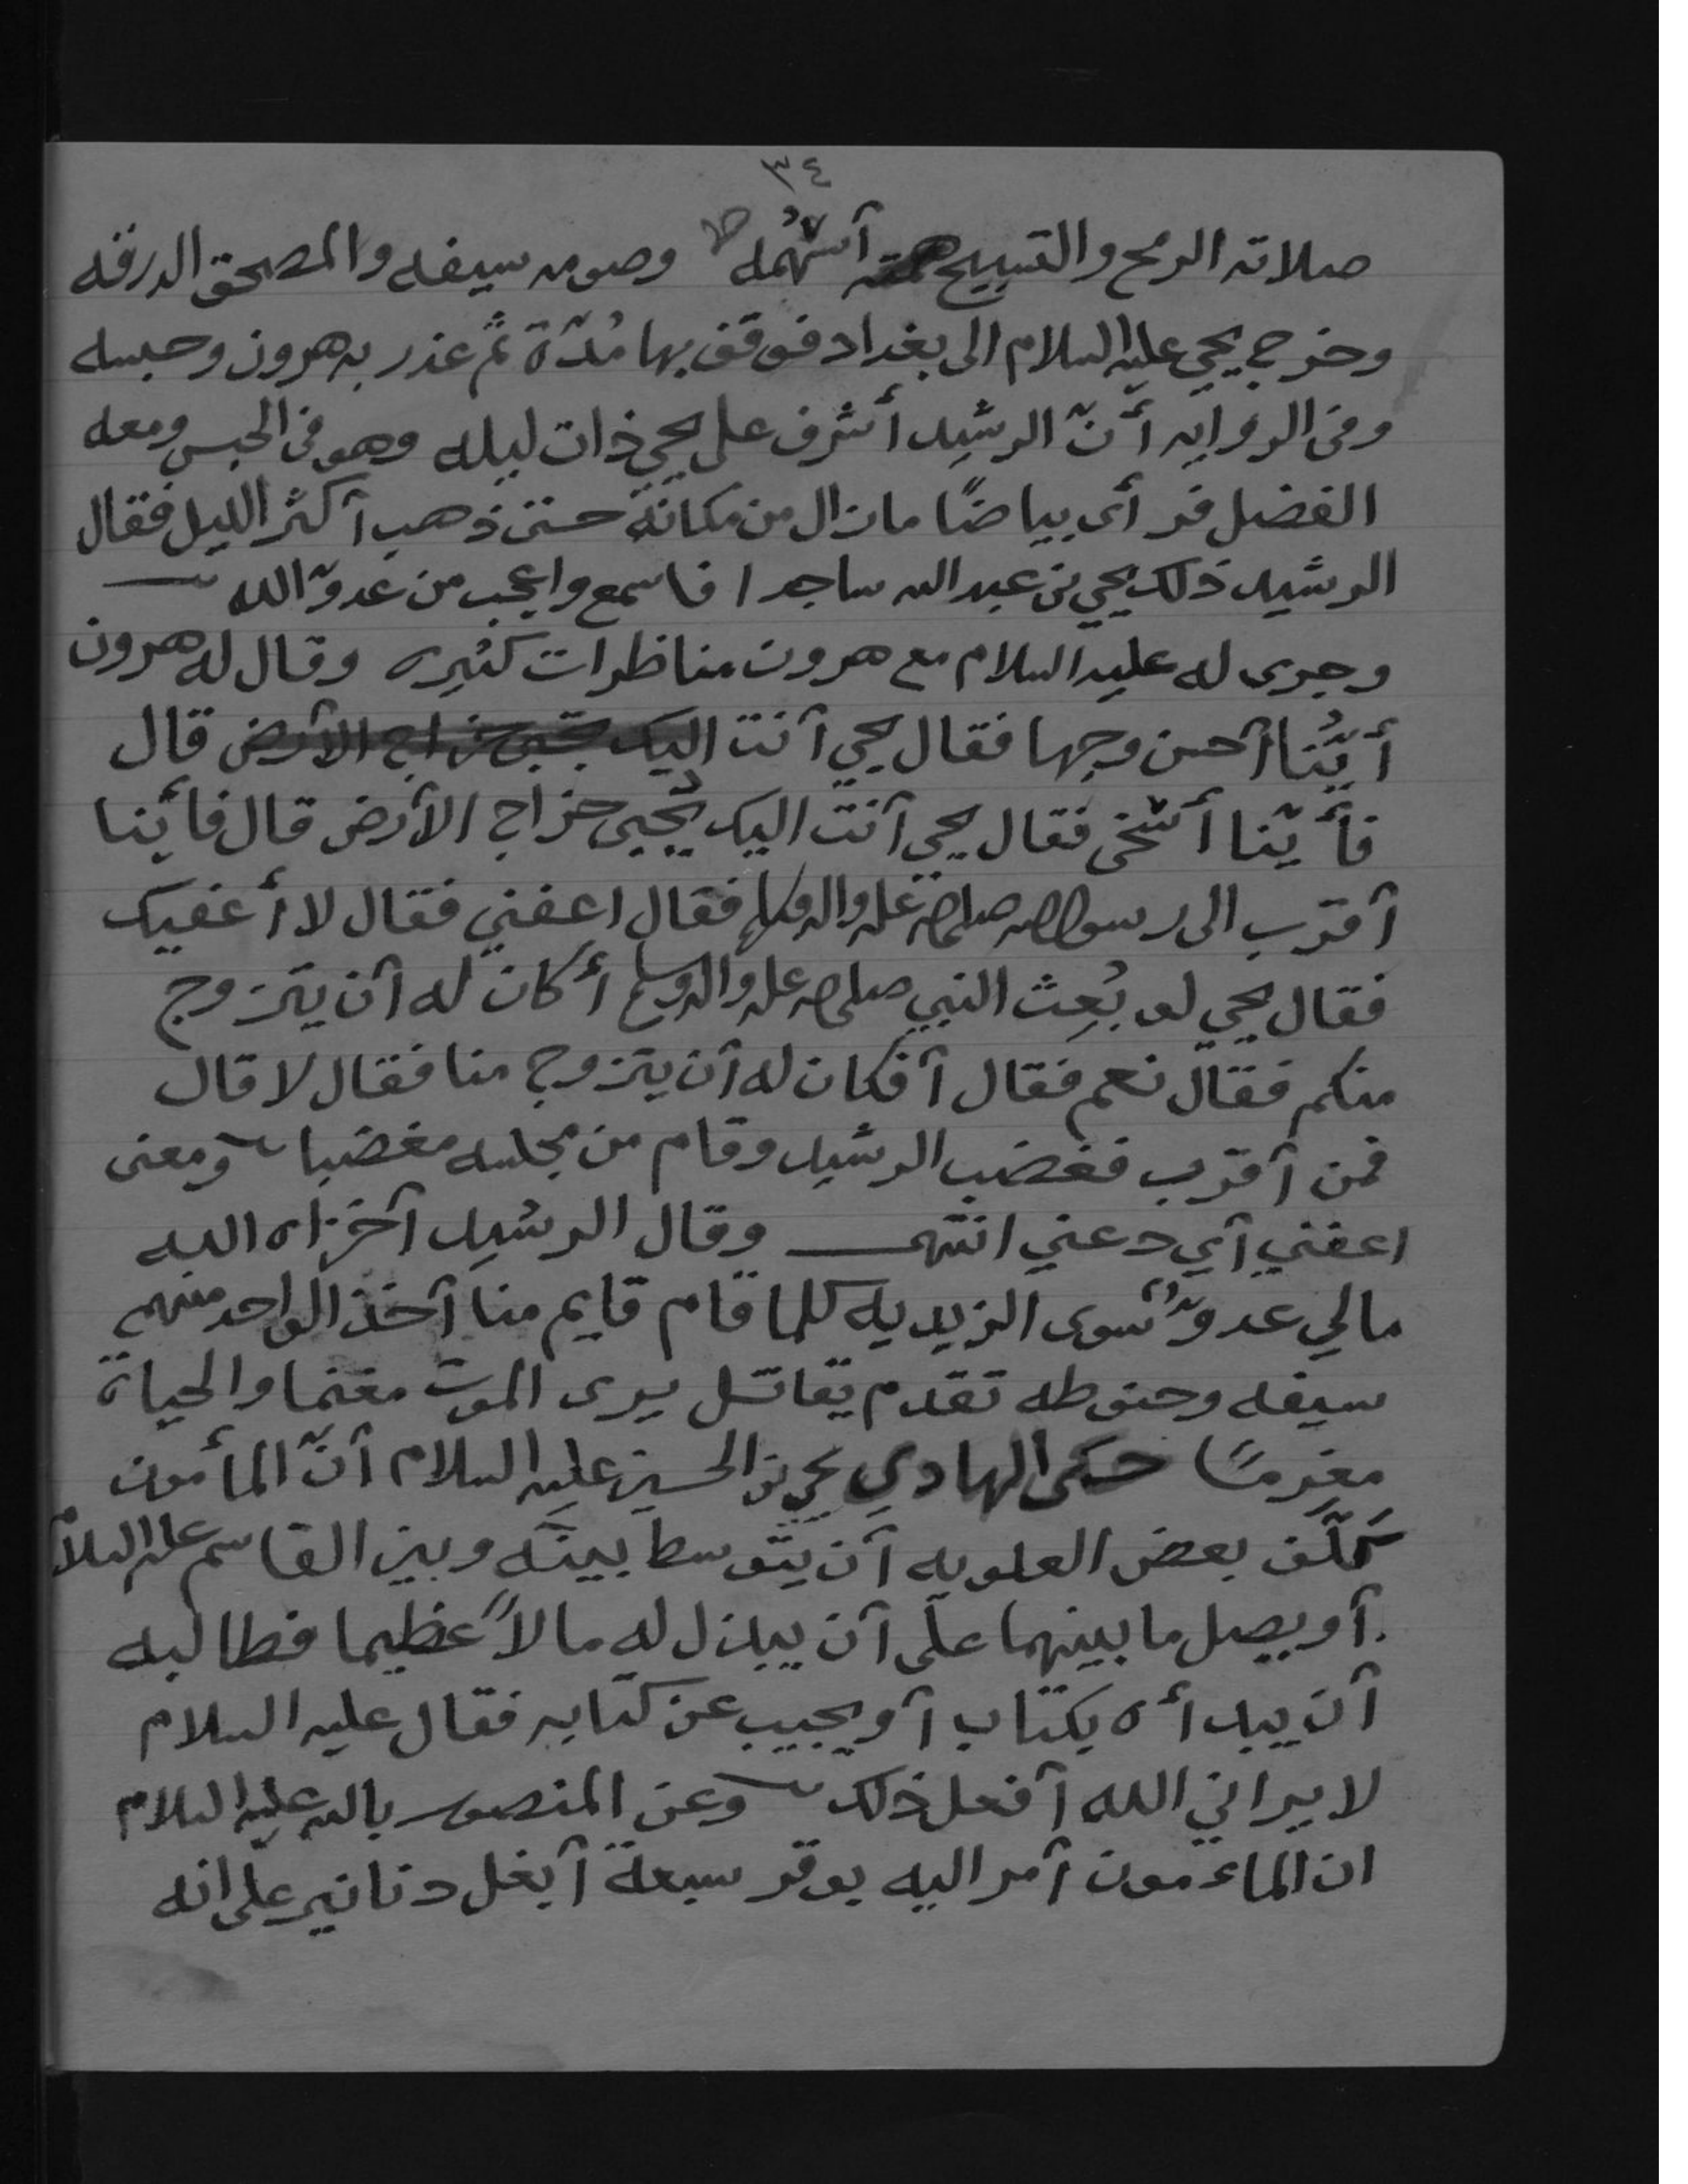 ٣٤
صلاته الرمح والتسبيح أسهمه وصومه سيفه والمصحق الدرقه
وخرج يحيى عليه السلام الى بغداد فوقف بها مُدّة ثم غدر به هرون وحبسه
وفى الروايه أنّ الرشيد أشرف على يحيى ذات ليله وهو فى الحبس ومعه
الفضل فرأى بياضًا مازال من مكانه حتى ذهب أكثر الليل فقال
الرشيد ذلك يحيى بن عبد الله ساجدا فاسمع واعجب من عدوّ الله
وجرى له عليه السلام مع هرون مناظرات كثيره وقال له هرون
أيّنُا أحسن وجها فقال يحيى أنت اليك يجبى خراج الأرض قال
فأيّنا أسخى فقال يحيى أنت اليك يُجبى خراج الأرض قال فأينا
أقرب الى رسول الله صلى الله عليه واله وسلم فقال اعفني فقال لا أعفيك
فقال يحيى لو بُعِث النبي صلى الله عليه واله وسلم أكان له أن يتزوج
منكم فقال نعم فقال أفكان له أن يتزوج منا فقال لا قال
فمن أقرب فغضب الرشيد وقام من مجلسه مغضبا ومعنى
اعفني أي دعني انتهى وقال الرشيد أخزاه الله
مالي عدوٌّ سوى الزيديه كلما قام قايم منا أخذ الواحد منهم
سيفه وحنوطه تقدم يقاتل يرى الموت مغنما والحياة
مغرمًا حكى الهادي يحيى بن الحسين عليه السلام أنّ المأمون
كلّف بعض العلويه أن يتوسط بينه وبين القاسم عليه السلام
أو يصل ما بينهما على أن يبذل له مالاً عظيما فطالبه
أن يبدأه بكتاب أو يجيب عن كتابه فقال عليه السلام
لا يراني الله أفعل ذلك وعن المنصور بالله عليه السلام
ان الماءمون أمر اليه بوقر سبعة أبغل دنانير على انه